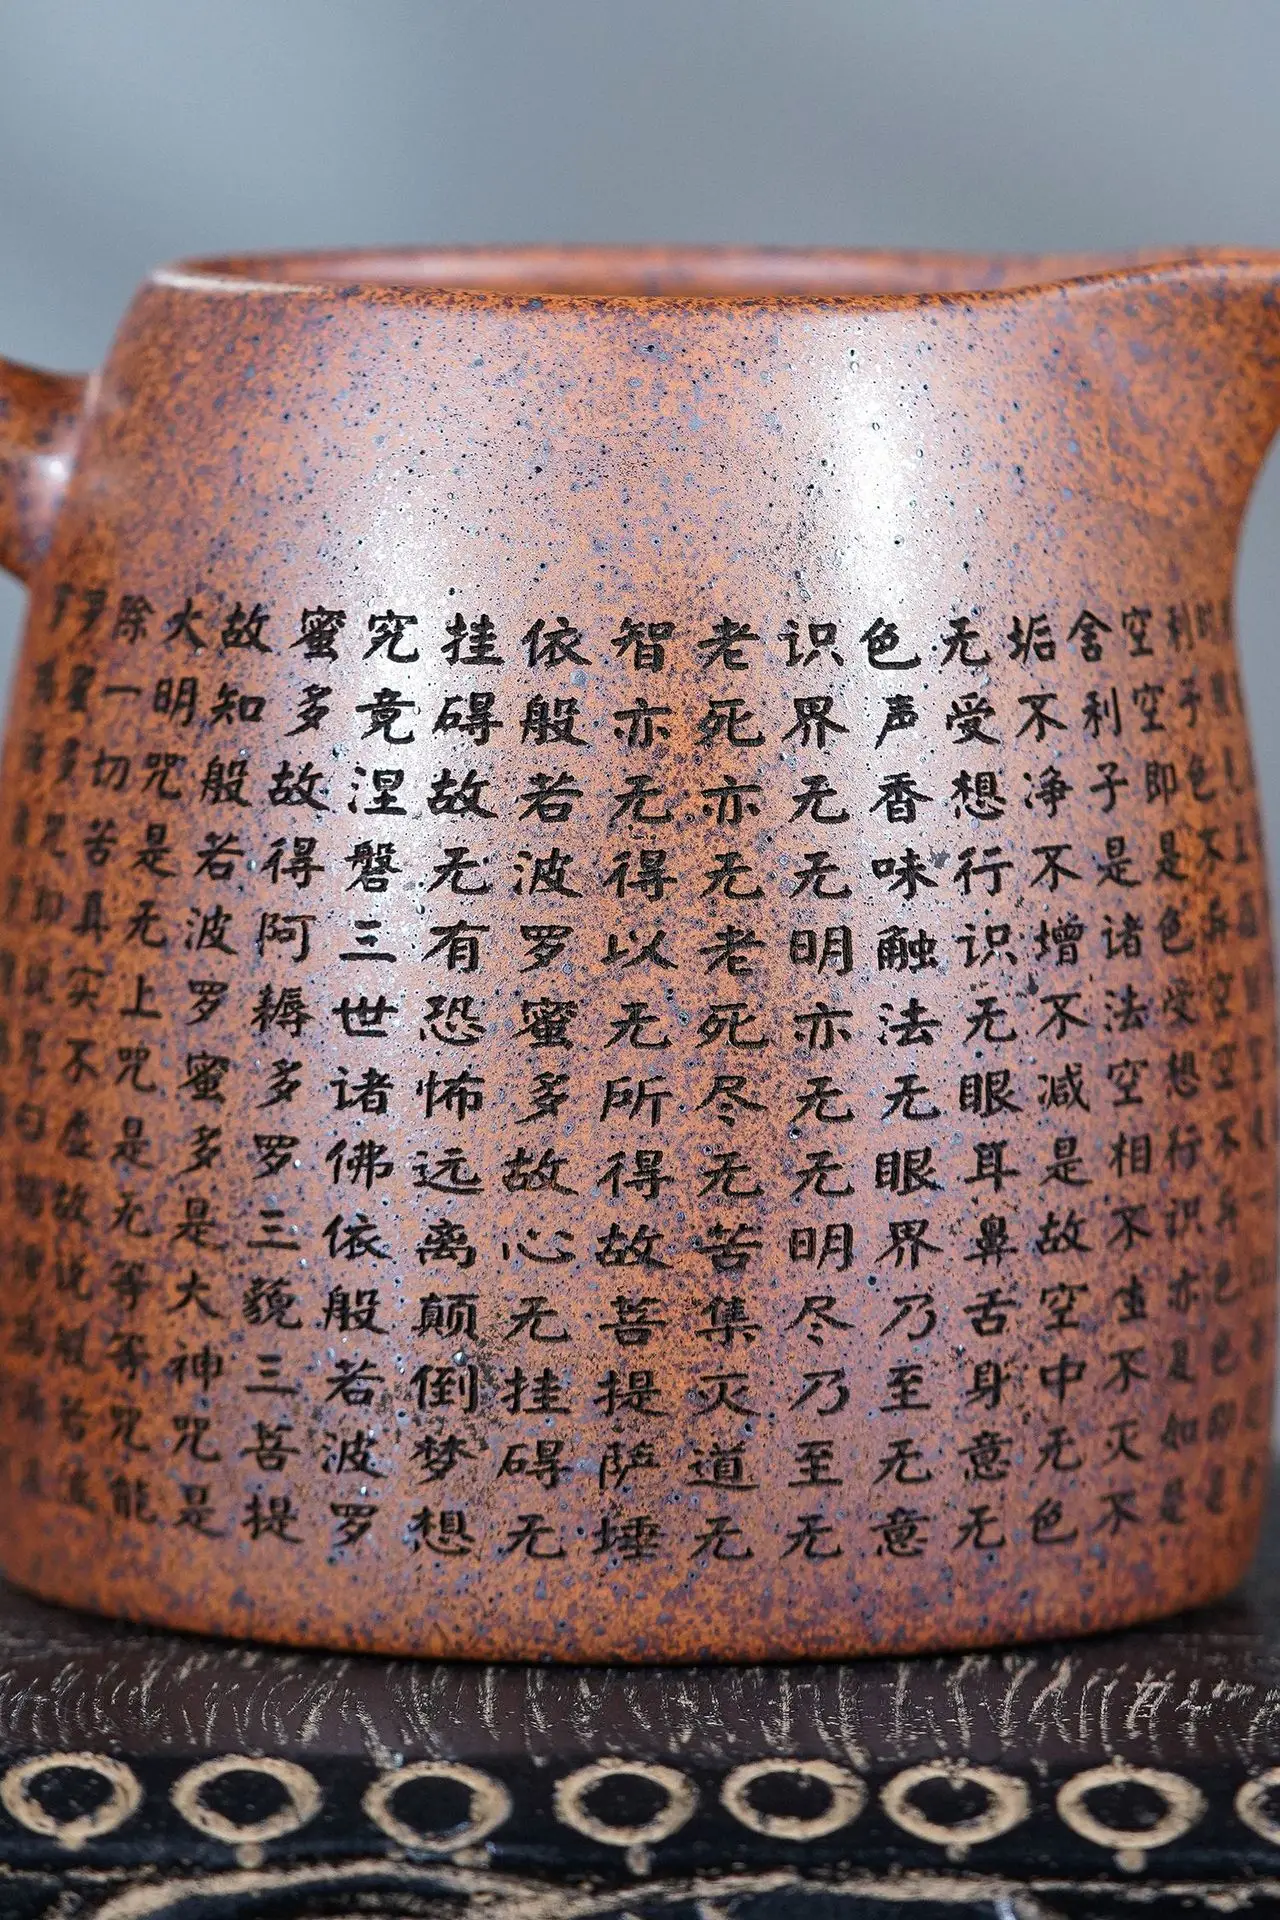 利子色不异空空不异色色即是
空空即是色受想行识亦复如是
舍利子是诸法空相不生不灭不
垢不净不增不减是故空中无色
无受想行识无眼耳鼻舌身意无
色声香味触法无眼界乃至无意
识界无无明亦无无明尽乃至无
老死亦无老死尽无苦集灭道无
智亦无得以无所得故菩提萨埵
依般若波罗蜜多故心无挂碍无
挂碍故无有恐怖远离颠倒梦想
究竟涅磐三世诸佛依般若波罗
蜜多故得阿耨多罗三藐三菩提
故知般若波罗蜜多是大神咒是
大明咒是无上咒是无等等咒能
除一切苦真实不虚故说般若波
罗蜜多咒即说咒曰